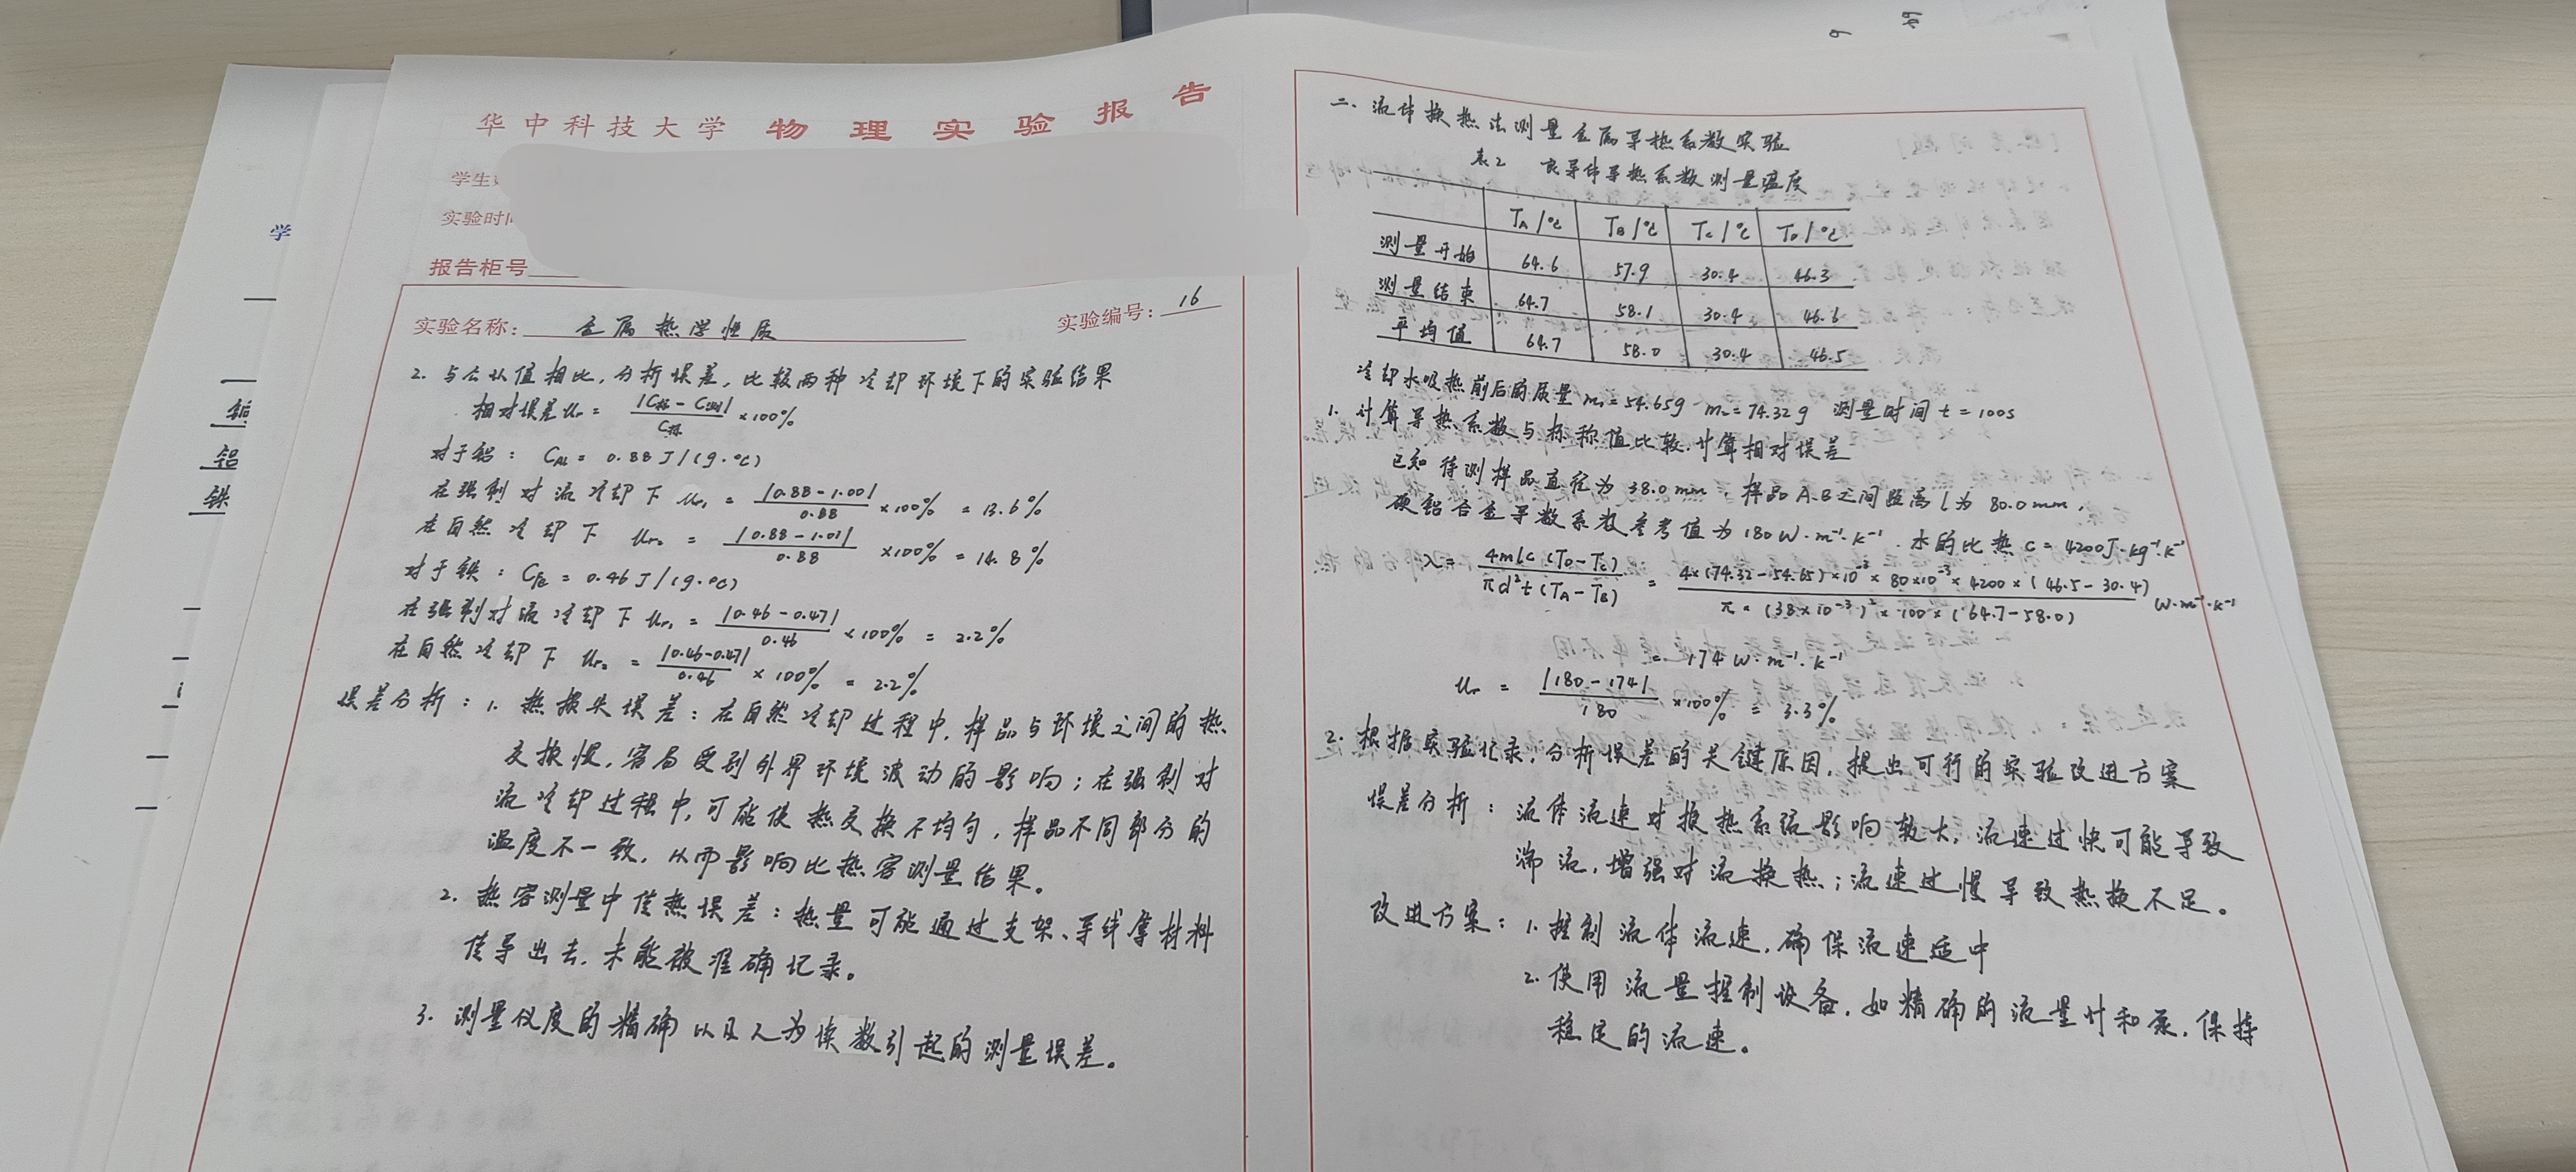 华中科技大学 物理实验报告
学生
实验时间
报告柜号
实验名称: 金属热学性质
实验编号: 16
2. 与公认值相比,分析误差,比较两种冷却环境下的实验结果
相对误差 Ur = |C标 - C测| / C标 ×100%
对于铝: CAl = 0.88 J/(g·℃)
在强制对流冷却下 Ur₁ = |0.88-1.00| / 0.88 ×100% = 13.6%
在自然冷却下 Ur₂ = |0.88-1.01| / 0.88 ×100% = 14.8%
对于铁: CFe = 0.46 J/(g·℃)
在强制对流冷却下 Ur₁ = |0.46-0.47| / 0.46 ×100% = 2.2%
在自然冷却下 Ur₂ = |0.46-0.47| / 0.46 ×100% = 2.2%
误差分析: 1. 热损失误差: 在自然冷却过程中, 样品与环境之间的热
交换慢, 容易受到外界环境波动的影响; 在强制对
流冷却过程中, 可能使热交换不均匀, 样品不同部分的
温度不一致, 从而影响比热容测量结果。
2. 热容测量中传热误差: 热量可能通过支架、导线等材料
传导出去, 未能被准确记录。
3. 测量仪度的精确以及人为读数引起的测量误差。
学
铝
铁
二. 流体换热法测量金属导热系数实验
表2 良导体导热系数测量温度
TA/℃ TB/℃ TC/℃ TD/℃
测量开始 64.6 57.9 30.4 46.3
测量结束 64.7 58.1 30.4 46.6
平均值 64.7 58.0 30.4 46.5
冷却水吸热前后的质量 m₁=54.65g m₂=74.32g 测量时间 t=100s
1. 计算导热系数与标称值比较, 计算相对误差
已知待测样品直径为38.0mm, 样品A、B之间距离l为80.0mm,
硬铝合金导数系数参考值为180W·m⁻¹·K⁻¹, 水的比热 c=4200J·kg⁻¹·K⁻¹
λ = 4mlc(TD-TC) / πd²t(TA-TB) = 4×(74.32-54.65)×10⁻³×80×10⁻³×4200×(46.5-30.4) / π×(38×10⁻³)²×100×(64.7-58.0) W·m⁻¹·K⁻¹
= 174 W·m⁻¹·K⁻¹
Ur = |180-174| / 180 ×100% = 3.3%
2. 根据实验记录, 分析误差的关键原因, 提出可行的实验改进方案
误差分析: 流体流速对换热系统影响较大, 流速过快可能导致
湍流, 增强对流换热; 流速过慢导致热换不足。
改进方案: 1. 控制流体流速, 确保流速适中
2. 使用流量控制设备, 如精确的流量计和泵, 保持
稳定的流速。